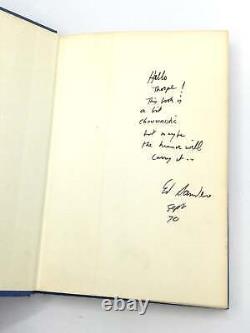 Hello
Thorpe!
This book is
a bit
chauvinistic
but maybe
the humor will
carry it..
Ed Sanders
Sept
70
hibenil.com